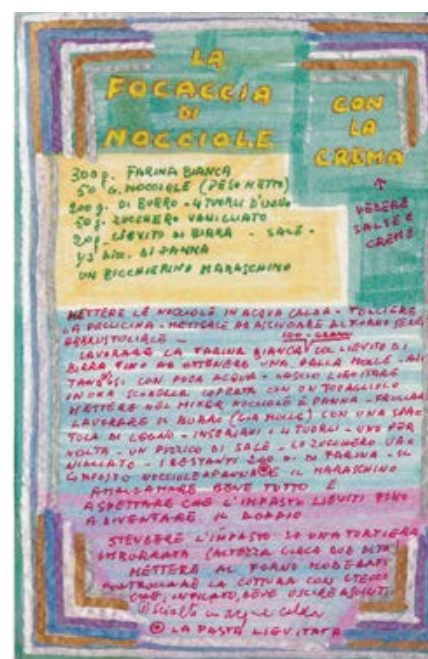 LA
FOCACCIA
DI
NOCCIOLE
CON
LA
CREMA
VEDERE
SALSE E
CREME
300 g. FARINA BIANCA
50 G. NOCCIOLE (PESO NETTO)
200 g. DI BURRO - 4 TUORLI D'UOVO
50 g. ZUCCHERO VANIGLIATO
20 g. LIEVITO DI BIRRA - SALE -
1/2 bic. DI PANNA
UN BICCHIERINO MARASCHINO
METTERE LE NOCCIOLE IN ACQUA CALDA - TOGLIERE
LA PELLICINA - METTERLE AD ASCIUGARE AL FORNO SENZA
ABBRUSTOLIRLE -
100 GRAMMI
LAVORARE LA FARINA BIANCA COL LIEVITO DI
BIRRA FINO AD OTTENERE UNA PALLA MOLLE - AIU
TANDOSI CON POCA ACQUA - LASCIO LIEVITARE
IN UNA SCODELLA COPERTA CON UN TOVAGLIOLO
METTERE NEL MIXER NOCCIOLE E PANNA - FRULLARE
LAVORARE IL BURRO (GIA MOLLE) CON UNA SPA
TOLA DI LEGNO - INSERIRVI I TUORLI - UNO PER
VOLTA - UN PIZZICO DI SALE - LO ZUCCHERO VA
NIGLIATO - I RESTANTI 200 g. DI FARINA - IL
COMPOSTO NOCCIOLE PANNA E IL MARASCHINO
AMALGAMARE BENE TUTTO E
ASPETTARE CHE L'IMPASTO LIEVITI FINO
A DIVENTARE IL DOPPIO
STENDERE L'IMPASTO IN UNA TORTIERA
IMBURRATA (ALTEZZA CIRCA DUE DITA)
METTERE AL FORNO MODERATO
CONTROLLARE LA COTTURA CON STECCO
CHE, INFILATO, DEVE USCIRE ASCIUTTO
sciolto in acqua calda
LA PASTA LIEVITATA